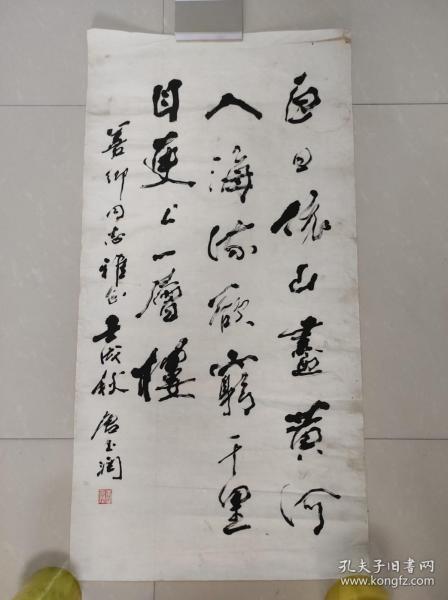 白日依山盡黄河
入海流欲窮千里
目更上一層樓
善卿同志雅正 壬戌秋 詹玉润
孔夫子旧书网
www.kongfz.com